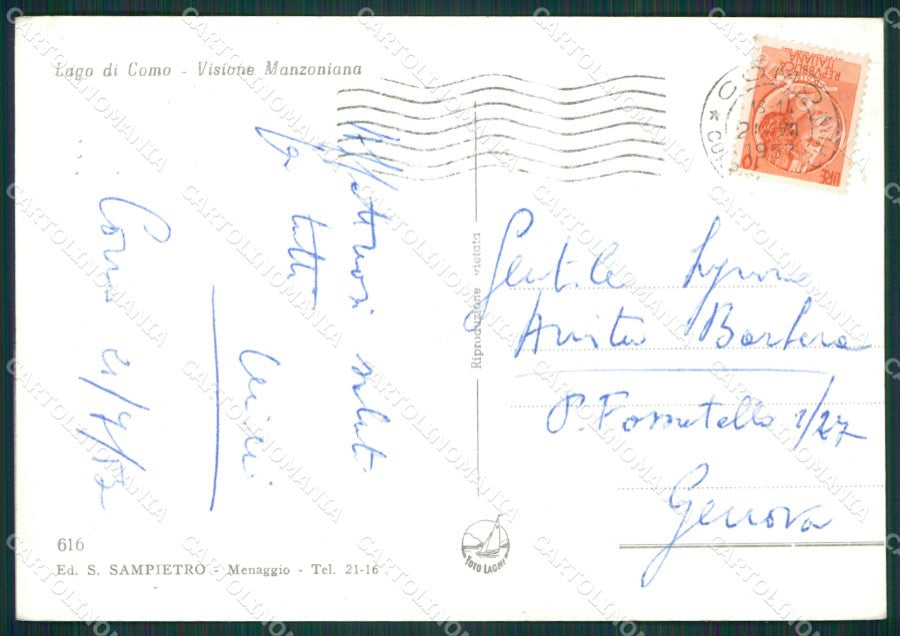 Lago di Como - Visione Manzoniana
Affettuosi saluti
a tutti
Como 21/7/53
Gentile Signora
Barbera
P. Fossatello 1/27
Genova
Riproduzione vietata
REPVBBLICA
ITALIANA
LIRE 10
COMO
1953
616
Ed. S. SAMPIETRO - Menaggio - Tel. 21-16
FOTO LAGHI
CARTOLINOMANIA